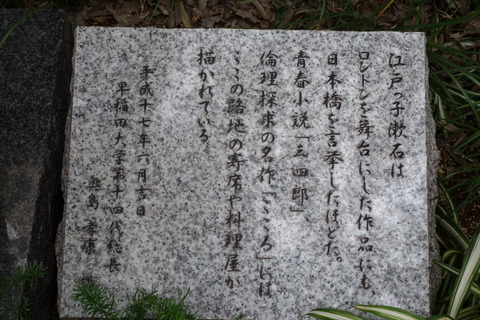 江戸っ子漱石は
ロンドンを舞台にした作品にも
日本橋を言挙したほどだ。
青春小説「三四郎」
倫理探求の名作「こころ」には
ここの路地の寄席や料理屋が
描かれている。
平成十七年六月吉日
早稲田大学第十四代総長
奥島孝康